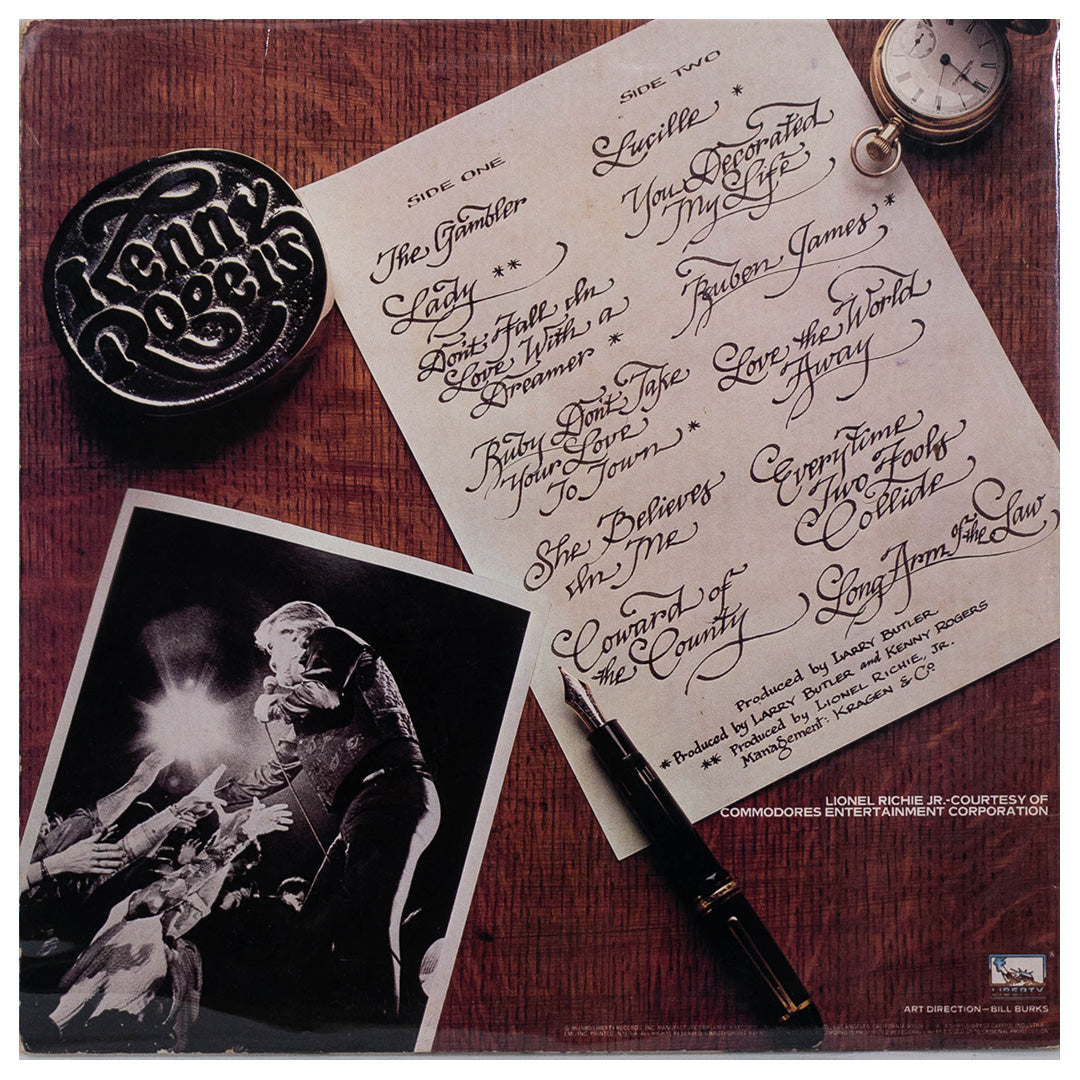 Kenny
Rogers
SIDE ONE
The Gambler
Lady **
Don't Fall In
Love With a
Dreamer *
Ruby Don't Take
Your Love
To Town *
She Believes
In Me
Coward of
the County
SIDE TWO
Lucille *
You Decorated
My Life
Ruben James *
Love the World
Away
Everytime
Two Fools
Collide
Long Arm of the Law
Produced by LARRY BUTLER
*Produced by LARRY BUTLER and KENNY ROGERS
** Produced by LIONEL RICHIE, JR.
Management: KRAGEN & Co.
LIONEL RICHIE JR.-COURTESY OF
COMMODORES ENTERTAINMENT CORPORATION
LIBERTY
ART DIRECTION—BILL BURKS